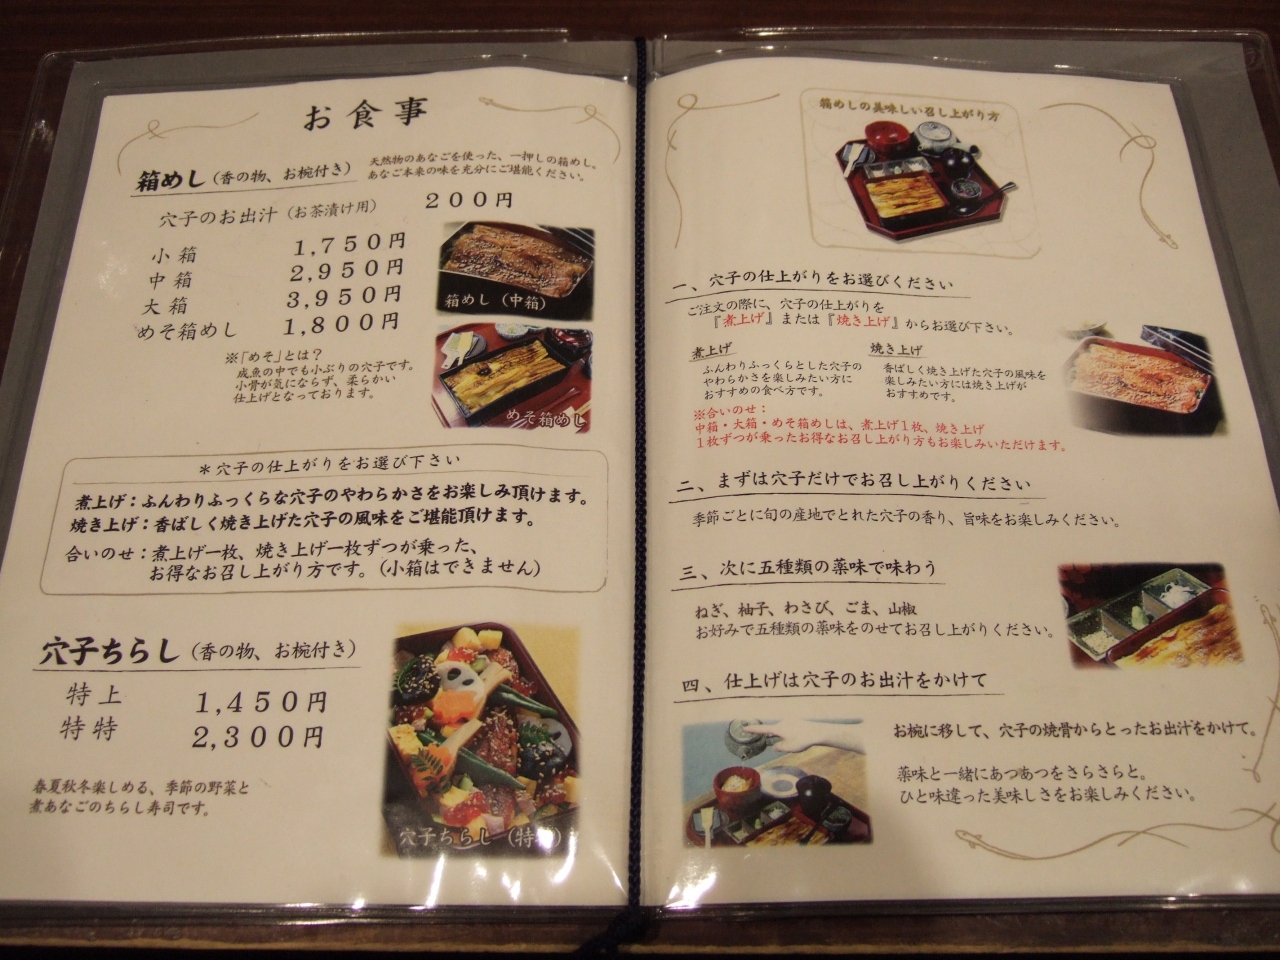 お食事
箱めし（香の物、お椀付き）
天然物のあなごを使った、一押しの箱めし。
あなご本来の味を充分にご堪能ください。
穴子のお出汁（お茶漬け用） 200円
小箱 1,750円
中箱 2,950円
大箱 3,950円
めそ箱めし 1,800円
※「めそ」とは？
成魚の中でも小ぶりの穴子です。
小骨が気にならず、柔らかい
仕上げとなっております。
箱めし（中箱）
めそ箱めし
＊穴子の仕上がりをお選び下さい
煮上げ：ふんわりふっくらな穴子のやわらかさをお楽しみ頂けます。
焼き上げ：香ばしく焼き上げた穴子の風味をご堪能頂けます。
合いのせ：煮上げ一枚、焼き上げ一枚ずつが乗った、
お得なお召し上がり方です。（小箱はできません）
穴子ちらし（香の物、お椀付き）
特上 1,450円
特特 2,300円
春夏秋冬楽しめる、季節の野菜と
煮あなごのちらし寿司です。
穴子ちらし（特特）
箱めしの美味しい召し上がり方
一、穴子の仕上がりをお選びください
ご注文の際に、穴子の仕上がりを
『煮上げ』または『焼き上げ』からお選び下さい。
煮上げ
ふんわりふっくらとした穴子の
やわらかさを楽しみたい方に
おすすめの食べ方です。
焼き上げ
香ばしく焼き上げた穴子の風味を
楽しみたい方には焼き上げが
おすすめです。
※合いのせ：
中箱・大箱・めそ箱めしは、煮上げ1枚、焼き上げ
1枚ずつが乗ったお得なお召し上がり方もお楽しみいただけます。
二、まずは穴子だけでお召し上がりください
季節ごとに旬の産地でとれた穴子の香り、旨味をお楽しみください。
三、次に五種類の薬味で味わう
ねぎ、柚子、わさび、ごま、山椒
お好みで五種類の薬味をのせてお召し上がりください。
四、仕上げは穴子のお出汁をかけて
お椀に移して、穴子の焼骨からとったお出汁をかけて。
薬味と一緒にあつあつをさらさらと。
ひと味違った美味しさをお楽しみください。